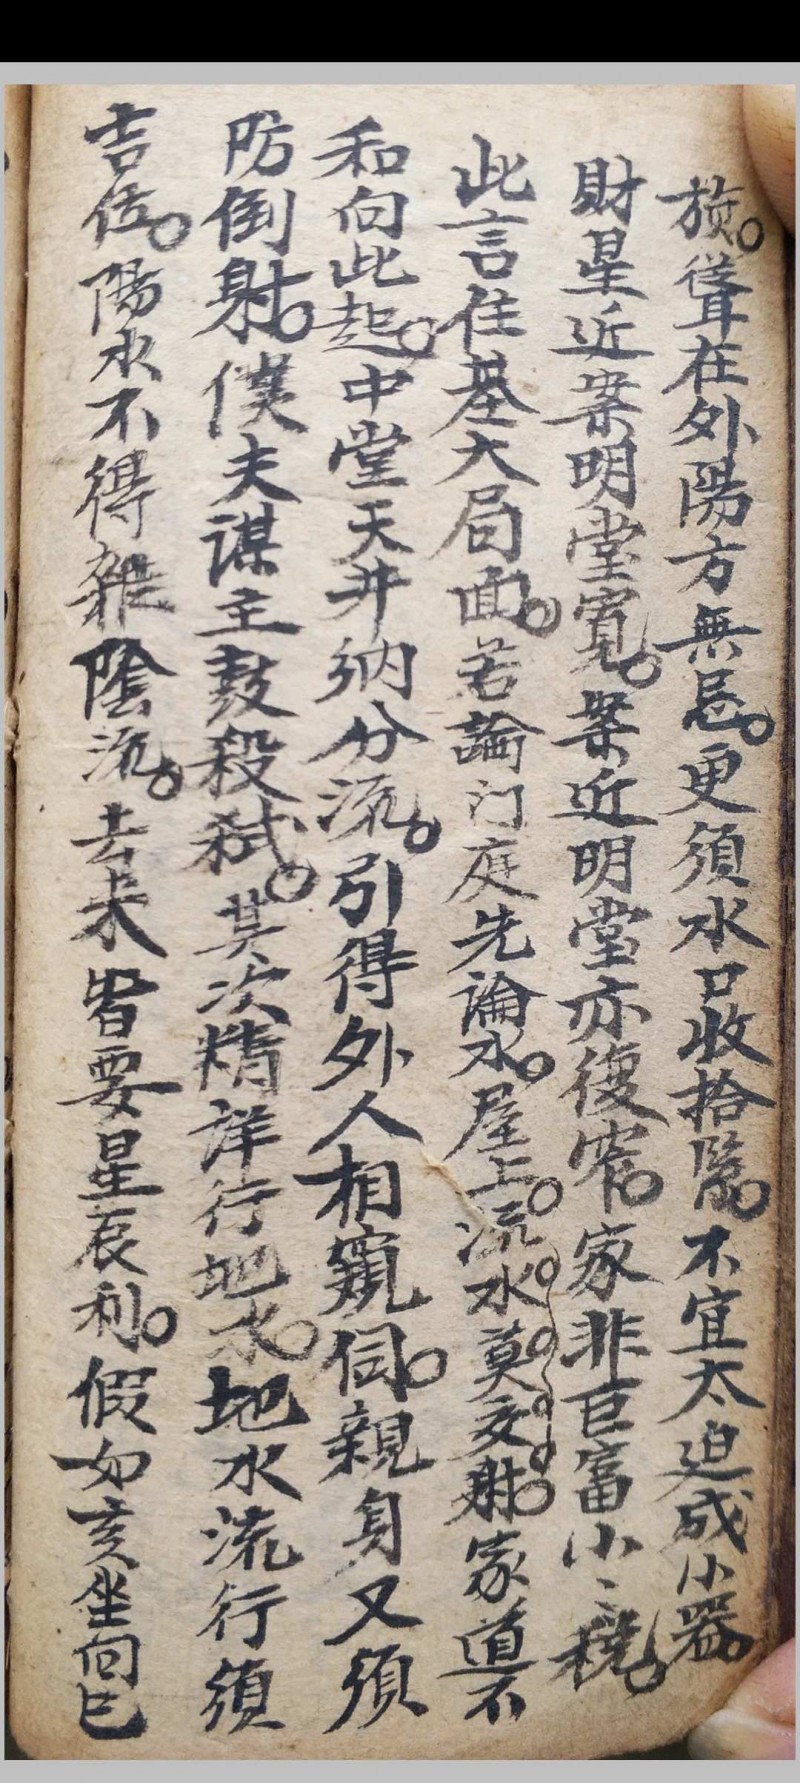 旋。聳在外陽方無忌。更須水口收拾緊。不宜太迫成小器。
財星近案明堂寬。案近明堂亦復窄。家非巨富小〻稅。
此言住基大局面。若論门庭先論水。屋上流水莫交射。家道不
和向此起。中堂天井納分流。引得外人相窺伺。親身又須
防倒射。僕夫謀主鼓殺弑。其次精詳行地水。地水流行須
吉位。陽水不得雜陰流。去来皆要星辰利。假如亥坐向巳